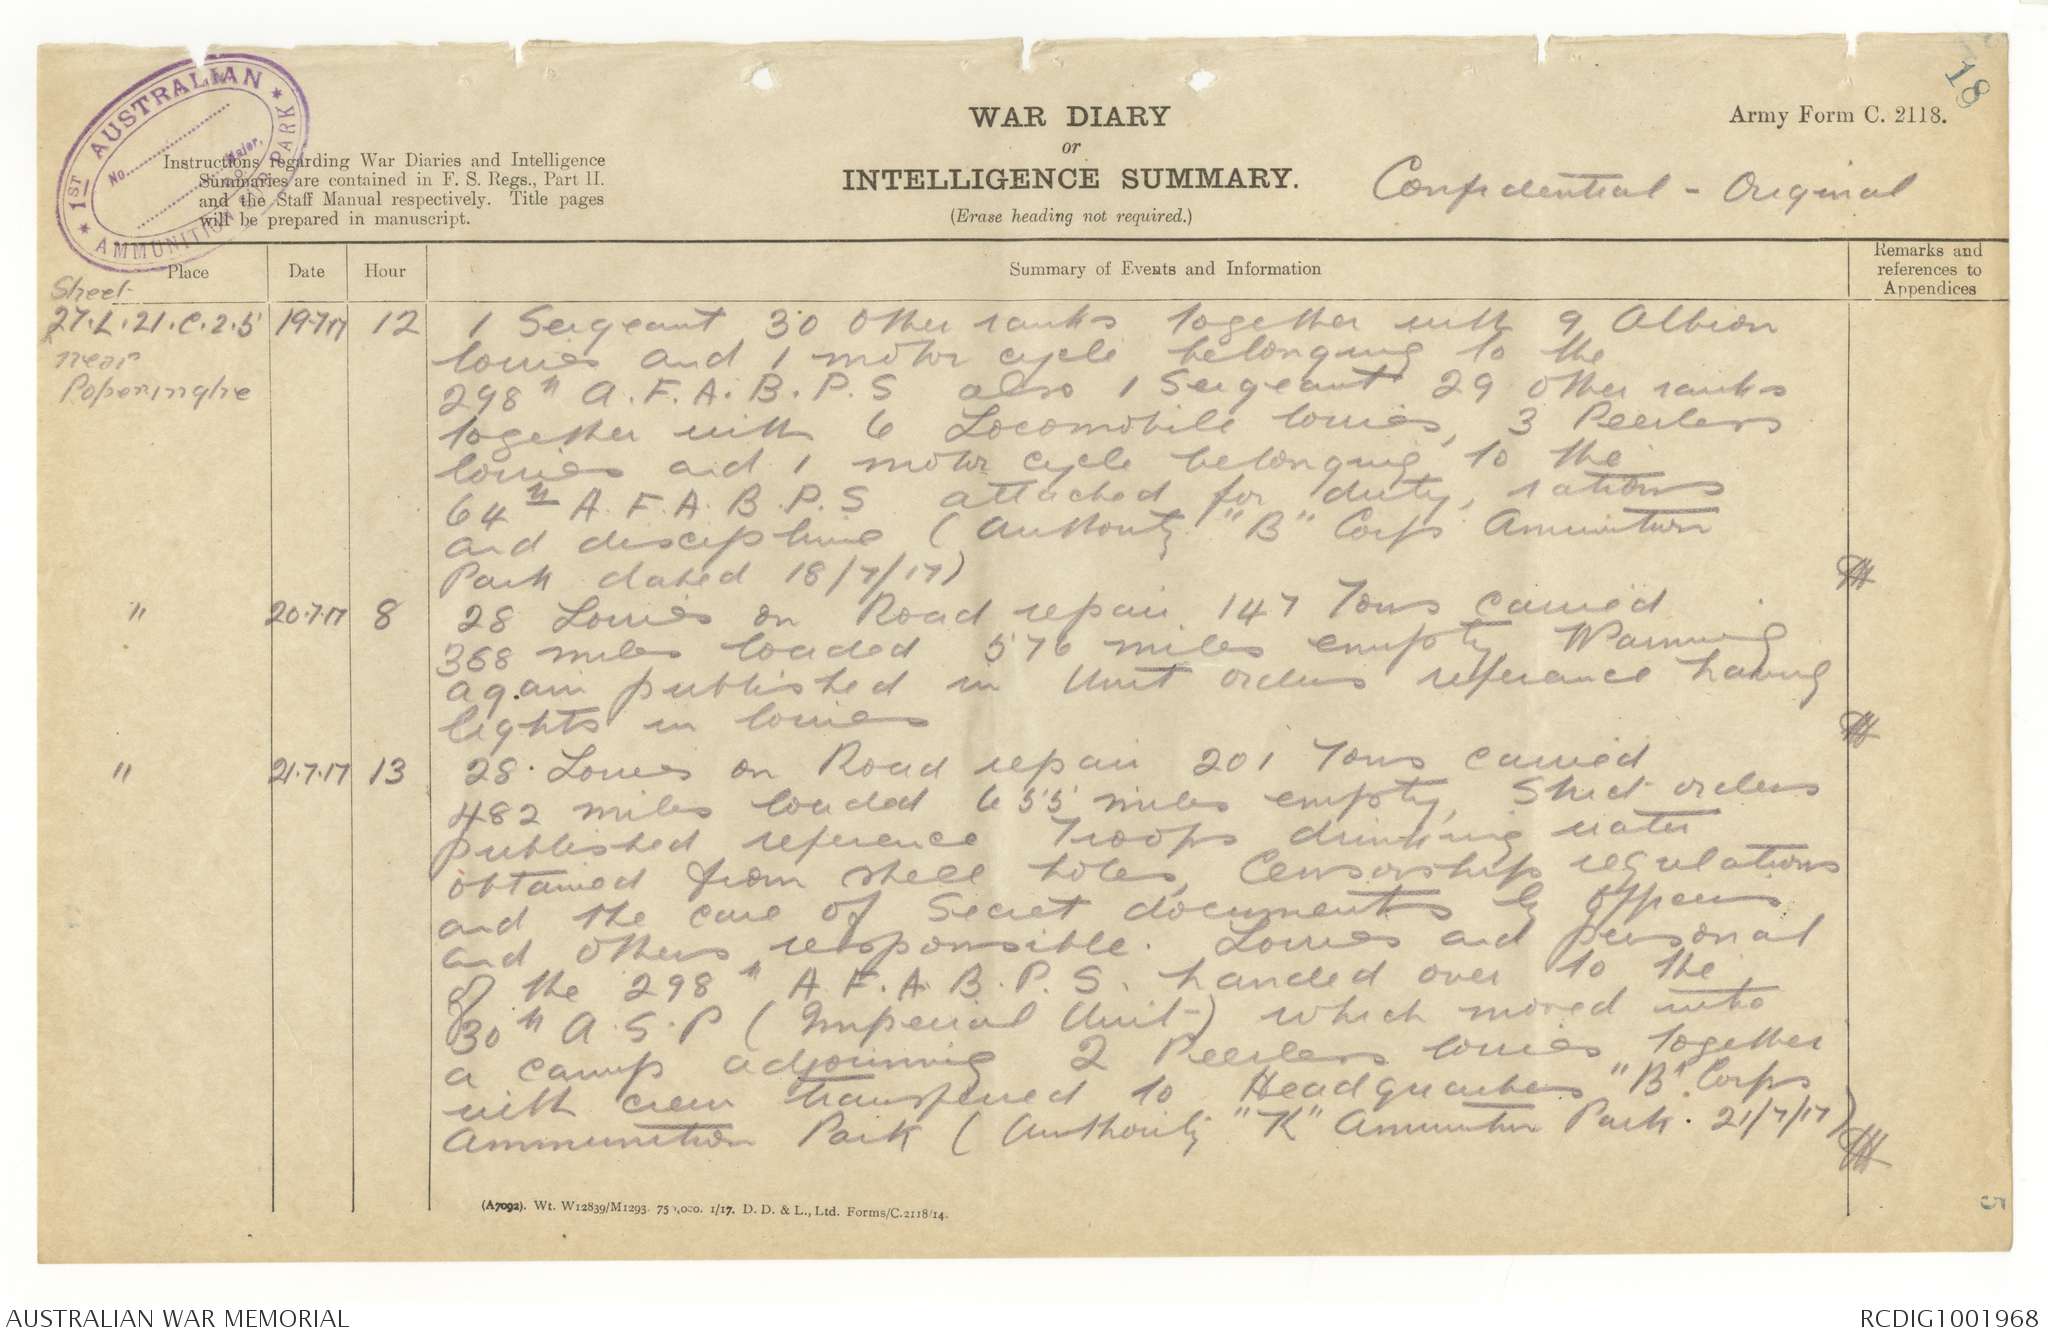 18
1ST AUSTRALIAN
No.
Major,
AMMUNITION SUB PARK
WAR DIARY
or
INTELLIGENCE SUMMARY.
(Erase heading not required.)
Army Form C. 2118.
Confidential - Original
Instructions regarding War Diaries and Intelligence
Summaries are contained in F. S. Regs., Part II.
and the Staff Manual respectively. Title pages
will be prepared in manuscript.
Place
Date
Hour
Summary of Events and Information
Remarks and
references to
Appendices
Sheet
27.L.21.C.2.5
near
Poperinghe
19.7.17
12
1 Sergeant 30 other ranks together with 9 Albion
lorries and 1 motor cycle belonging to the
298th A.F.A.B.P.S also 1 Sergeant 29 other ranks
together with 6 Locomobile lorries, 3 Peerless
lorries and 1 motor cycle belonging to the
64th A.F.A.B.P.S attached for duty, rations
and discipline (Authority "B" Corps Ammunition
Park dated 18/7/17)
" 20.7.17 8
28 Lorries on Road repair. 147 Tons carried
368 miles loaded 576 miles empty. Warning
again published in Unit orders reference having
lights in lorries
" 21.7.17 13
28 Lorries on Road repair 201 Tons carried
482 miles loaded 655 miles empty, Strict orders
published reference Troops drinking water
obtained from shell holes, Censorship regulations
and the care of Secret documents by officers
and others responsible. Lorries and personal
of the 298th A.F.A.B.P.S. handed over to the
30th A.S.P (Imperial Unit) which moved into
a camp adjoining 2 Peerless lorries together
with crew transferred to Headquarters "B" Corps
Ammunition Park (Authority "K" Ammunition Park. 21/7/17)
(A7092). Wt. W12839/M1293. 750,000. 1/17. D. D. & L., Ltd. Forms/C.2118/14.
5
AUSTRALIAN WAR MEMORIAL
RCDIG1001968